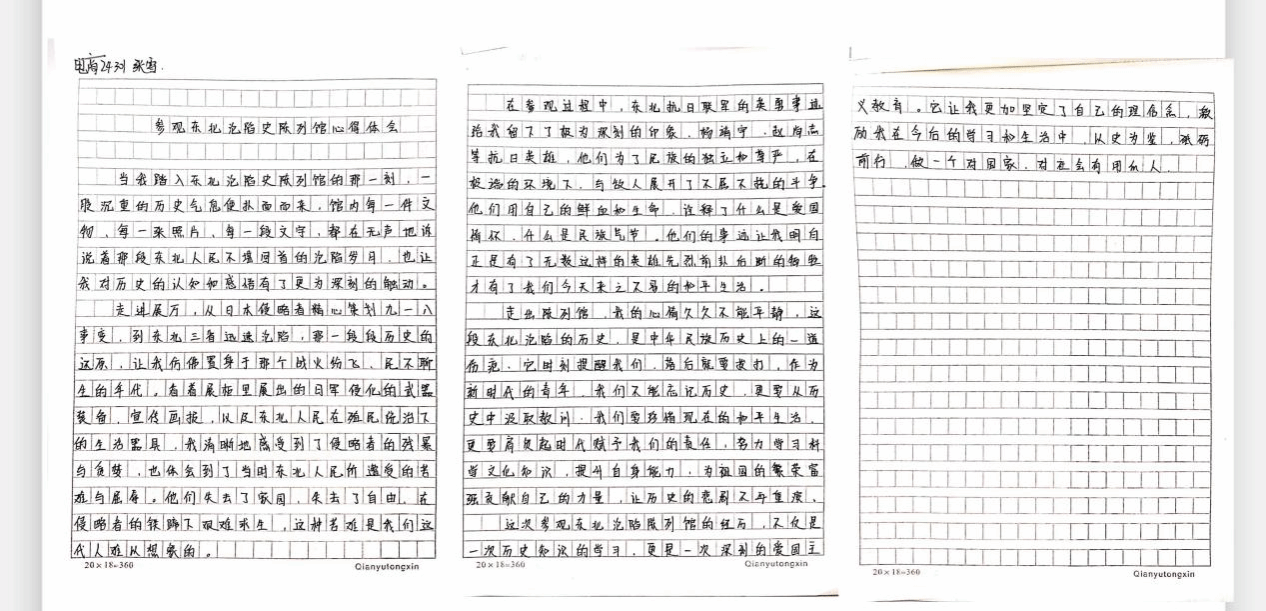 电商2431 张雪.
参观东北沦陷史陈列馆心得体会
当我踏入东北沦陷史陈列馆的那一刻，一
股沉重的历史气息便扑面而来，馆内每一件文
物、每一张照片、每一段文字，都在无声地诉
说着那段东北人民不堪回首的沦陷岁月，也让
我对历史的认知和感悟有了更为深刻的触动。
走进展厅，从日本侵略者精心策划九一八
事变，到东北三省迅速沦陷，那一段段历史的
还原，让我仿佛置身于那个战火纷飞、民不聊
生的年代。看着展柜里展出的日军侵化的武器
装备、宣传画报，以及东北人民在殖民统治下
的生活器具，我清晰地感受到了侵略者的残暴
与贪婪，也体会到了当时东北人民所遭受的苦
难与屈辱。他们失去了家园，失去了自由，在
侵略者的铁蹄下艰难求生，这种苦难是我们这
代人难以想象的。
20×18=360
Qianyutongxin
在参观过程中，东北抗日联军的英勇事迹
给我留下了极为深刻的印象，杨靖宇、赵尚志
等抗日英雄，他们为了民族的独立和尊严，在
极端的环境下，与敌人展开了不屈不挠的斗争.
他们用自己的鲜血和生命，诠释了什么是爱国
情怀，什么是民族气节。他们的事迹让我明白
正是有了无数这样的英雄先烈前赴后继的牺牲
才有了我们今天来之不易的和平生活。
走出陈列馆，我的心情久久不能平静，这
段东北沦陷的历史，是中华民族历史上的一道
伤疤，它时刻提醒我们，落后就要挨打，作为
新时代的青年，我们不能忘记历史，更要从历
史中汲取教训，我们要珍惜现在的和平生活，
更要肩负起时代赋予我们的责任，努力学习科
学文化知识，提升自身能力，为祖国的繁荣富
强贡献自己的力量，让历史的悲剧不再重演、
这次参观东北沦陷陈列馆的经历，不仅是
一次历史知识的学习，更是一次深刻的爱国主
20×18=360
Qianyutongxin
义教育。它让我更加坚定了自己的理信念，激
励我在今后的学习和生活中，以史为鉴，砥砺
前行，做一个对国家、对社会有用的人.
20×18=360
Qianyutongxin